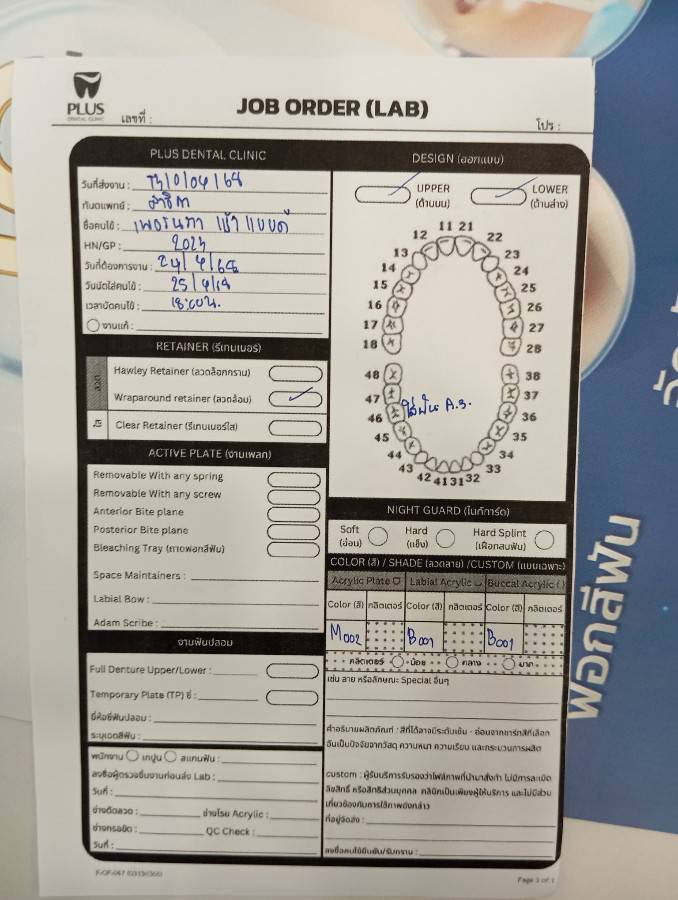 PLUS
DENTAL CLINIC
เลขที่ :
JOB ORDER (LAB)
โปร :
PLUS DENTAL CLINIC
วันที่ส่งงาน :
ทันตแพทย์ :
ชื่อคนไข้ :
HN/GP : 2024
วันที่ต้องการงาน : 24/4/68
วันนัดใส่คนไข้ : 25/4/68
เวลานัดคนไข้ : 18:00น.
งานแก้ :
RETAINER (รีเทนเนอร์)
ลวด
Hawley Retainer (ลวดล็อกกราม)
Wraparound retainer (ลวดอ้อม)
ใส
Clear Retainer (รีเทนเนอร์ใส)
ACTIVE PLATE (งานเพลท)
Removable With any spring
Removable With any screw
Anterior Bite plane
Posterior Bite plane
Bleaching Tray (ถาดฟอกสีฟัน)
Space Maintainers :
Labial Bow :
Adam Scribe :
งานฟันปลอม
Full Denture Upper/Lower :
Temporary Plate (TP) ซี่ :
ยี่ห้อซี่ฟันปลอม :
ระบุเฉดสีฟัน :
พนักงาน เทปูน สแกนฟัน :
ลงชื่อผู้ตรวจชิ้นงานก่อนส่ง Lab :
วันที่ :
ช่างดัดลวด : ช่างโรย Acrylic :
ช่างกรอขัด : QC Check :
วันที่ :
DESIGN (ออกแบบ)
UPPER
(ด้านบน)
LOWER
(ด้านล่าง)
11 21
12 22
13 23
14 24
15 25
16 26
17 27
18 28
48 38
47 37
ใส่ฟัน A.3.
46 36
45 35
44 34
43 33
42 41 31 32
NIGHT GUARD (ไนท์การ์ด)
Soft
(อ่อน)
Hard
(แข็ง)
Hard Splint
(เฝือกสบฟัน)
COLOR (สี) / SHADE (ลวดลาย) /CUSTOM (แบบเฉพาะ)
Acrylic Plate Labial Acrylic Buccal Acrylic
Color (สี) กลิตเตอร์ Color (สี) กลิตเตอร์ Color (สี) กลิตเตอร์
M002 B001 B001
กลิตเตอร์ น้อย กลาง มาก
เช่น ลาย หรือลักษณะ Special อื่นๆ
คำอธิบายผลิตภัณฑ์ : สีที่ได้อาจมีระดับเข้ม - อ่อนจากชาร์ทสีที่เลือก
อันเป็นปัจจัยจากวัสดุ ความหนา ความเรียบ และกระบวนการผลิต
custom : ผู้รับบริการรับรองว่าไฟล์ภาพที่นำมาสั่งทำ ไม่มีการละเมิด
ลิขสิทธิ์ หรือสิทธิส่วนบุคคล คลินิกเป็นเพียงผู้ให้บริการ และไม่มีส่วน
เกี่ยวข้องกับการใช้ภาพดังกล่าว
ที่อยู่จัดส่ง :
ลงชื่อคนไข้ยืนยัน/รับทราบ :
Page 1 of 1
ฟอกสีฟัน